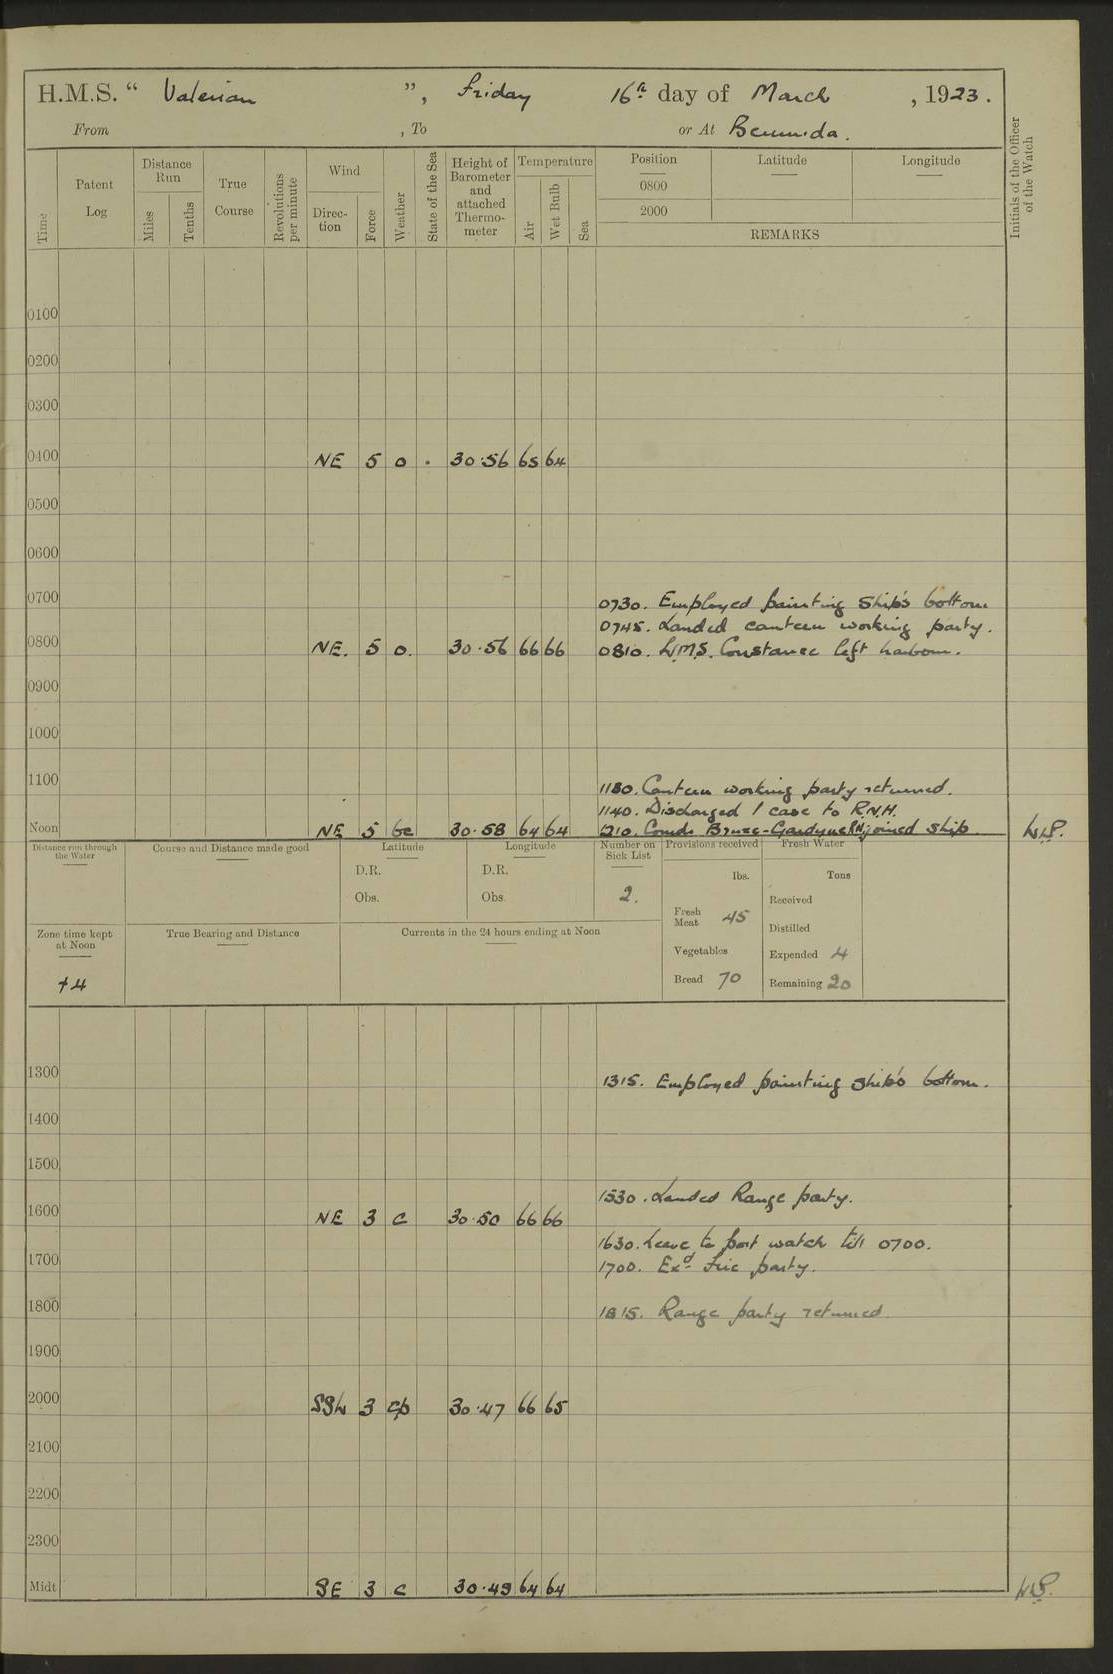 H.M.S. “ Valerian ”, Friday 16th day of March , 1923.
From , To or At Bermuda.
Time
Patent Log
Distance Run
Miles
Tenths
True Course
Revolutions per minute
Wind
Direction
Force
Weather
State of the Sea
Height of Barometer and attached Thermometer
Temperature
Air
Wet Bulb
Sea
Position
0800
2000
Latitude
Longitude
REMARKS
Initials of the Officer of the Watch
0100
0200
0300
0400 NE 5 o . 30.56 65 64
0500
0600
0700
0730. Employed painting Ship's bottom
0745. Landed canteen working party.
0800 NE. 5 o. 30.56 66 66
0810. H.M.S. Constance left harbour.
0900
1000
1100
1130. Canteen working party returned.
1140. Discharged 1 case to R.N.H.
Noon NE 5 bc 30.58 64 64
1210. Comdr. Bruce-Gardyne RN joined ship.
Distance run through the Water
Course and Distance made good
Latitude
D.R.
Obs.
Longitude
D.R.
Obs.
Number on Sick List
2.
Provisions received
lbs.
Fresh Meat 45
Vegetables
Bread 70
Fresh Water
Tons
Received
Distilled
Expended 4
Remaining 20
Zone time kept at Noon
+4
True Bearing and Distance
Currents in the 24 hours ending at Noon
1300
1315. Employed painting ship's bottom.
1400
1500
1530. Landed Range party.
1600 NE 3 c 30.50 66 66
1630. Leave to port watch till 0700.
1700
1700. Exd. fire party.
1800
1815. Range party returned.
1900
2000 SSW 3 cp 30.47 66 65
2100
2200
2300
Midt SE 3 c 30.49 64 64